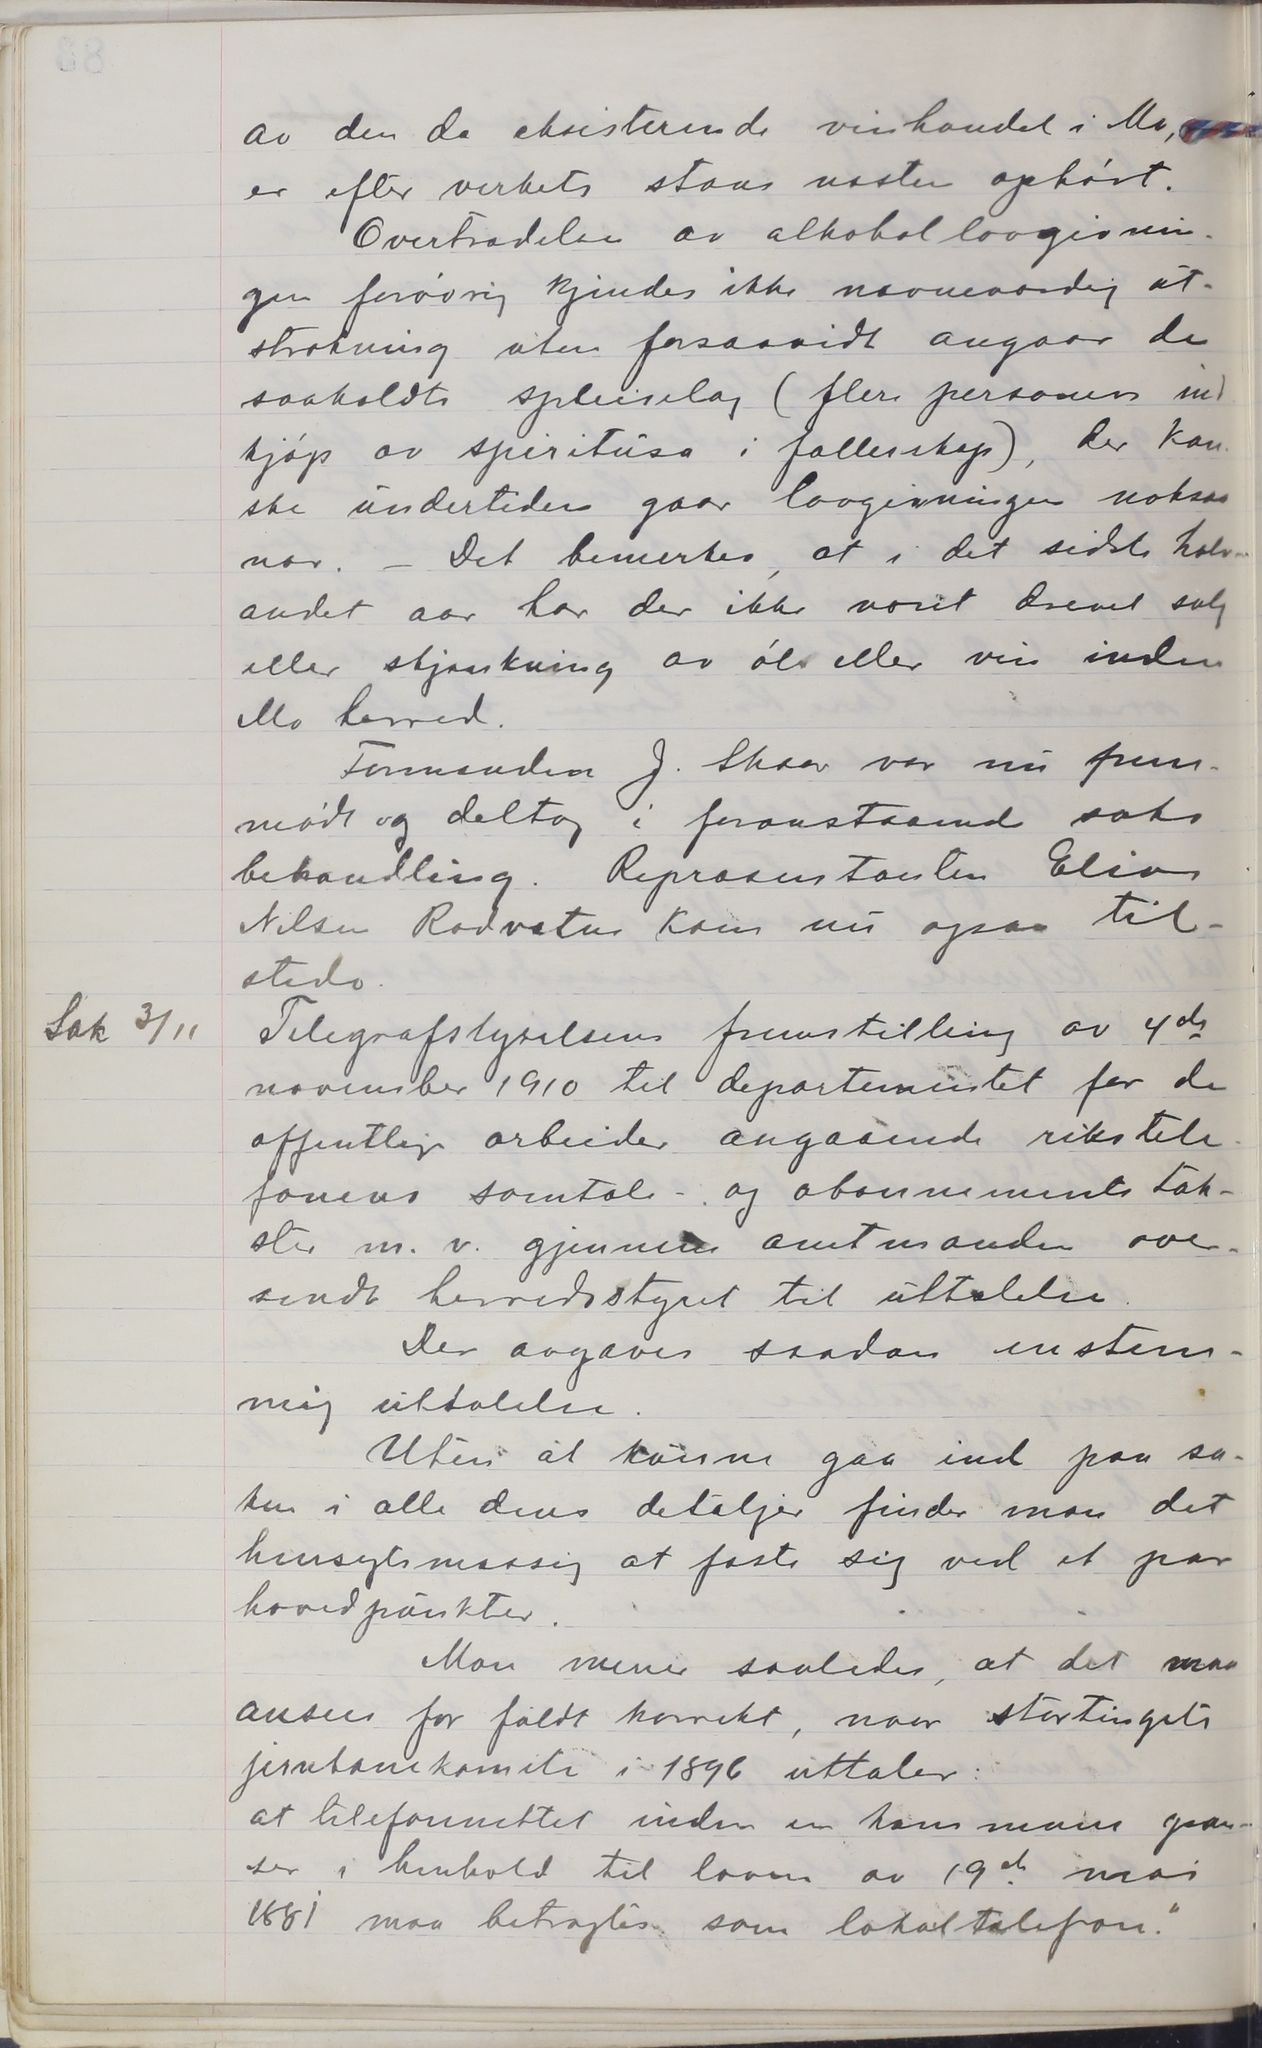 av den da eksisterende vinhandel i Mo,
er efter verkets stans næsten ophørt.
Overtrædelse av alkohollovgivnin-
gen forøvrig kjendes ikke nævneværdig ut-
strækning uten forsaavidt angaar de
saakaldte spleiselag (flere personers ind
kjøp av spirituosa i fællesskap), der kan-
ske undertiden gaar lovgivningen noksaa
nær. – Det bemerkes, at i det sidste halv-
andet aar har der ikke været drevet salg
eller skjænkning av øl eller vin inden
Mo herred.
Formanden J. Skaar var nu frem-
mødt og deltog i foranstaaende saks
behandling. Repræsentanten Elias
Nilsen Rødvatne kom nu ogsaa til-
stede.
Sak 3/11 Telegrafstyrelsens fremstilling av 4de
november 1910 til departementet for de
offentlige arbeider angaaende rikstele-
fonens samtale- og abonnements tak-
ster m. v. gjennem amtmanden over-
sendt herredsstyret til uttalelse.
Der avgaves saadan enstem-
mig uttalelse.
Uten at kunne gaa ind paa sa-
ken i alle dens detaljer finder man det
hensigtsmæssig at fæste sig ved et par
hovedpunkter.
Man mener saaledes, at det maa
ansees for fuldt korrekt, naar stortingets
jernbanekomite i 1896 uttaler:
at telefonnettet inden en kommunes græn-
ser i henhold til loven av 19de mai
1881 maa betragtes som lokaltelefon."